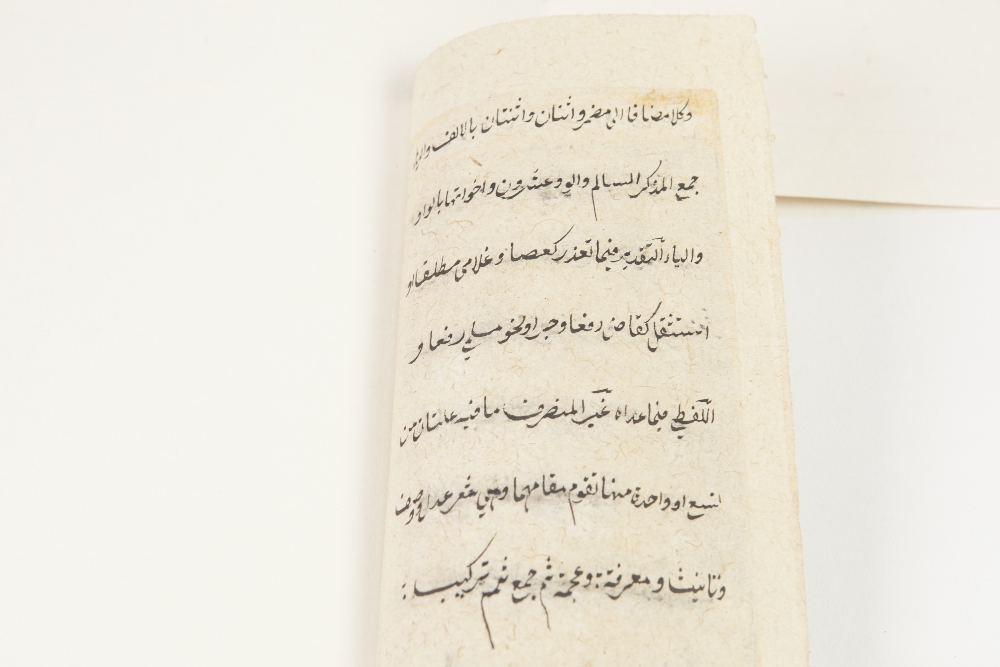 وكلا مضافا الى مضمر واثنان واثنتان بالالف والياء
جمع المذكر السالم والو وعشرون واخواتها بالواو
والياء التقدير فيما تعذر كعصا وغلامي مطلقا او
استثقل كقاض رفعا وجرا ونحو مسلمي رفعا و
اللفظي فيما عداه غير المنصرف ما فيه علتان من
تسع او واحدة منها تقوم مقامهما وهي شعر عدل ووصف
وتانيث ومعرفة وعجمة ثم جمع ثم تركيب